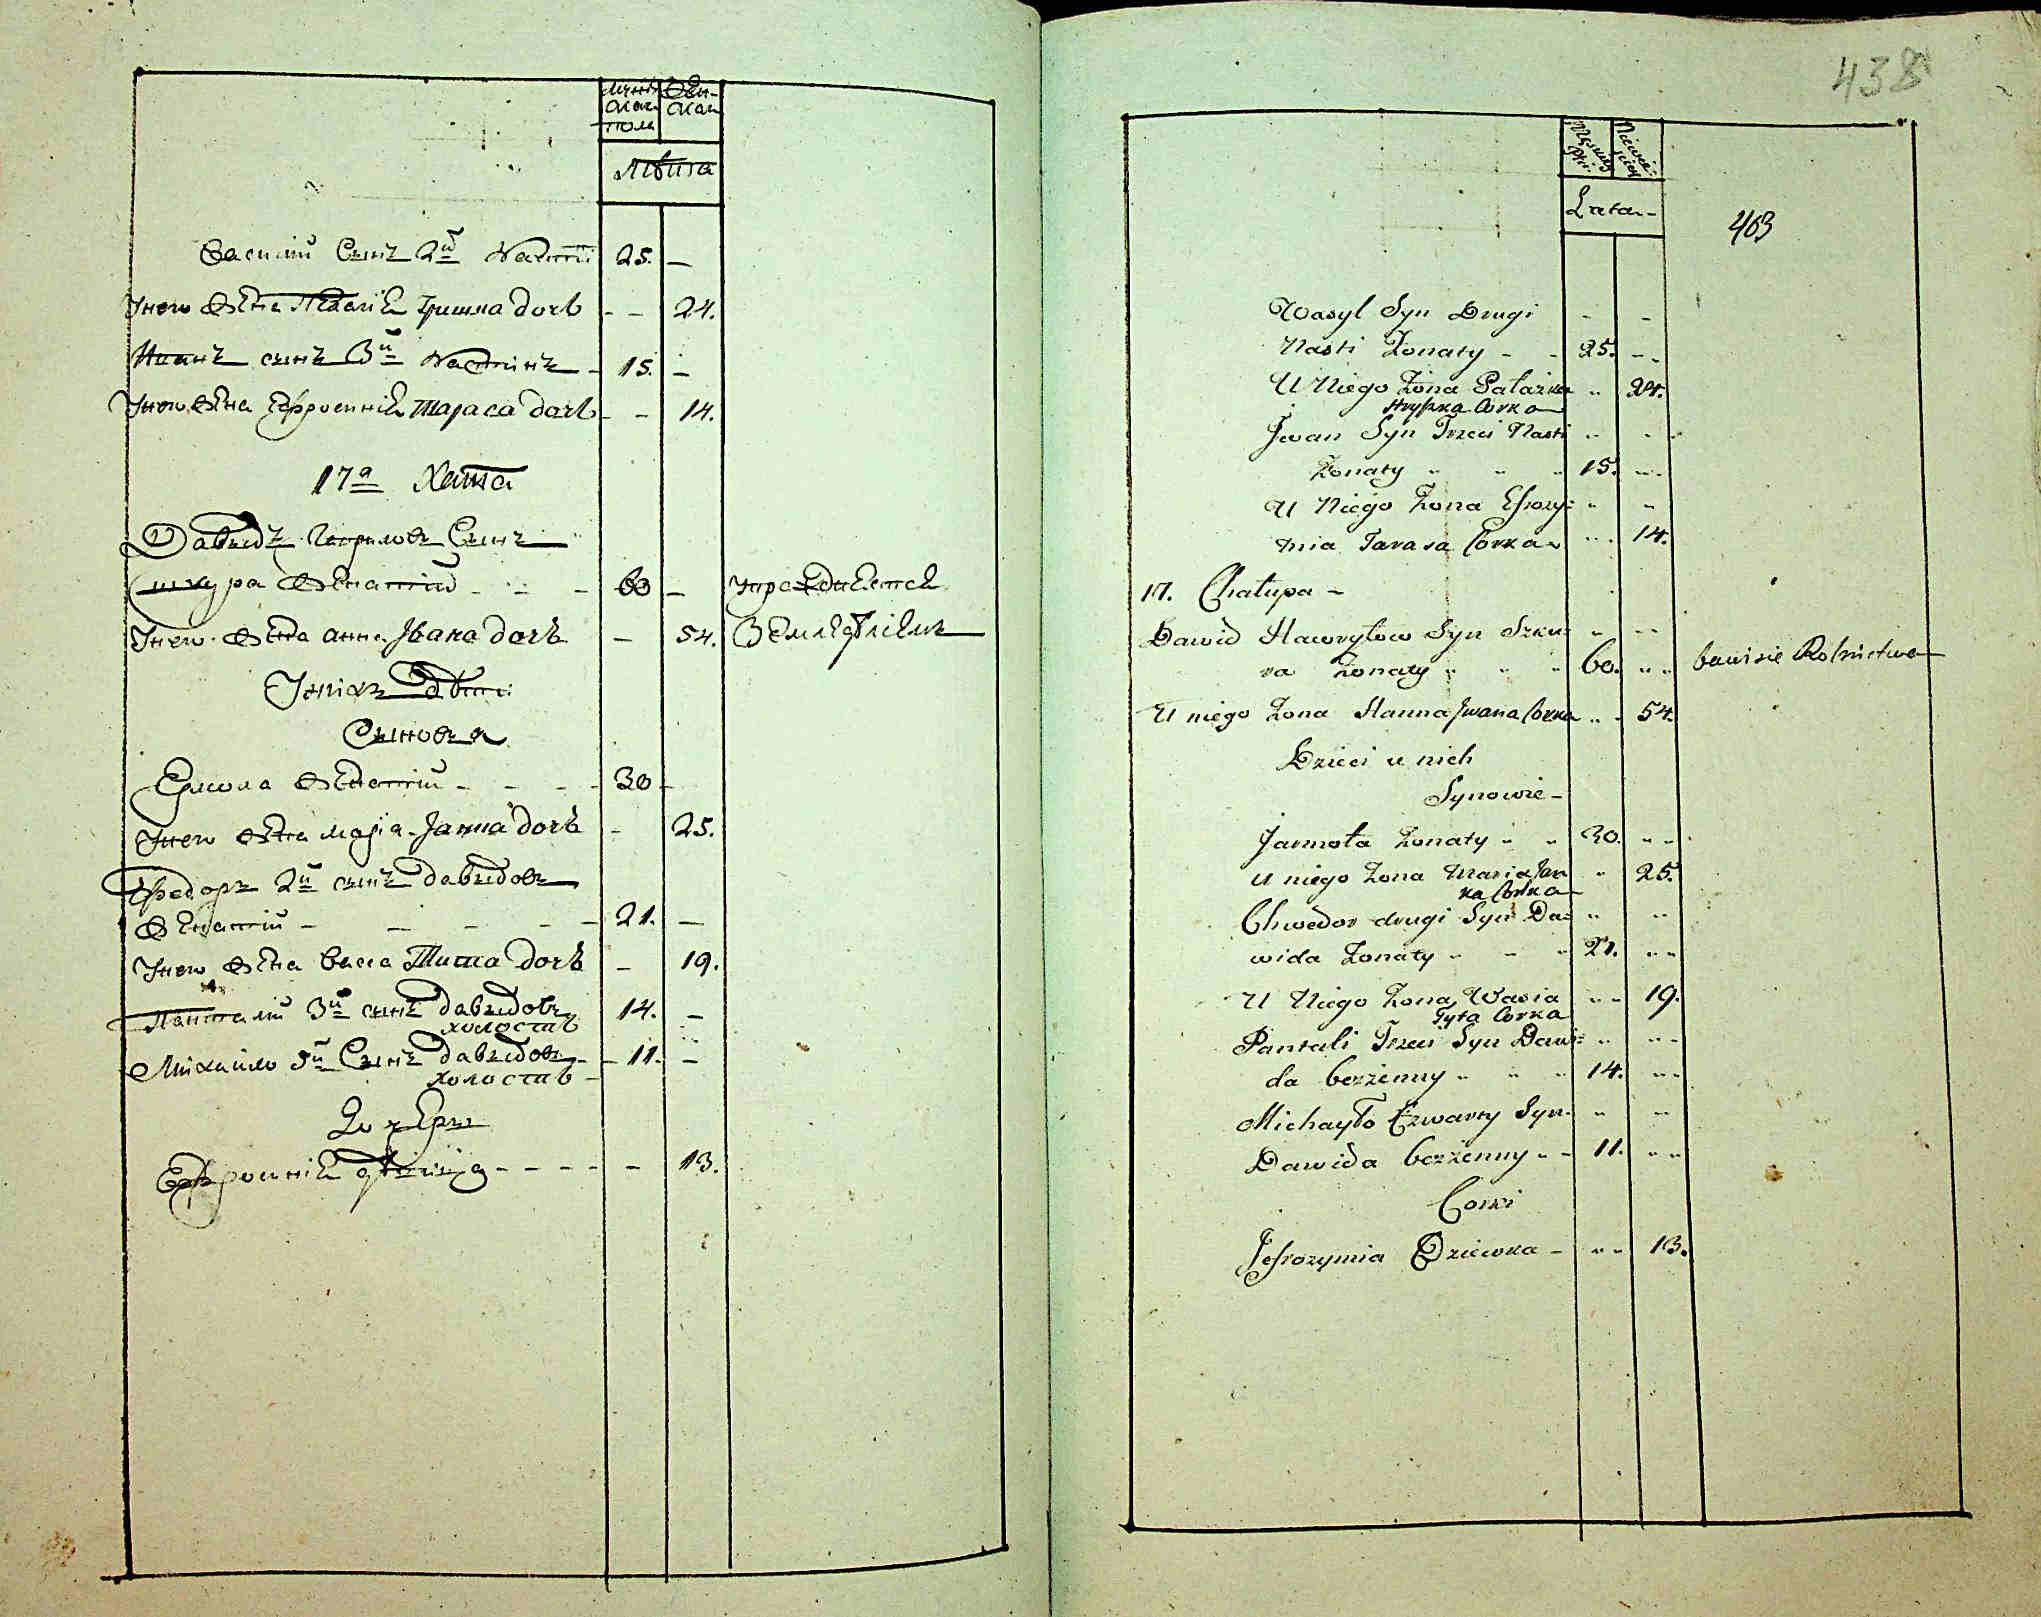 Муже
скаго
полу
Жен-
скаго
Лѣта
Василій Сынъ 2й Настіи 25. —
У него жена Палагія Гришка дочь — — 24.
Иванъ сынъ 3й Настинъ — 15. —
У него жена Ефросинія Тараса дочь — — 14.
17а Хата
Давыдъ Гавриловъ Сынъ
Шкура женатый — — — 60 — упражняется
У него жена Анна Ивана дочь — 54. Земледѣліемъ
У нихъ дѣти
Сыновья
Ермола женатій — — — — 30 —
У него жена Марія Янка дочь — 25.
Ѳедоръ 2й сынъ Давыдовъ
женатій — — — — — 21. —
У него жена Васса Тита дочь — 19.
Панталій 3й сынъ Давыдовъ 14. —
холоставъ
Михайло 5й Сынъ Давыдовъ — 11. —
холоставъ —
Дочери
Ефросинія дѣвица — — — — — 13.
438
Męskiey
płci
Niewie-
sciey
Lata —
463
Wasyl Syn Drugi - -
Nasti Żonaty - - 25. - -
U Niego Żona Pałażka " 24.
Hryszka Corka
Jwan Syn Trzeci Nasti " - -
Żonaty " " " 15. - -
U Niego Żona Efrozy= " -
mia Tarasa Corka - " - 14.
17. Chałupa -
Dawid Hawryłow Syn Szku= " - -
ra Żonaty " " " 60. " " bawi sie Rolnictwem
U niego Żona Hanna Jwana Corka " - 54.
Dzieci u nich
Synowie -
Jarmoła Żonaty " " 30. " "
U niego Żona Maria Jan " 25.
ka Corka
Chwedor drugi Syn Da= " "
wida Żonaty - - - 21. " "
U Niego Żona Wasia " " 19.
Tyta Corka
Pantali Trzeci Syn Dawi= " - -
da bezżenny " " " 14. " "
Michayło Czwarty Syn - " "
Dawida bezżenny - - 11. " "
Corki
Jefrozymia Dziewka - " " 13.